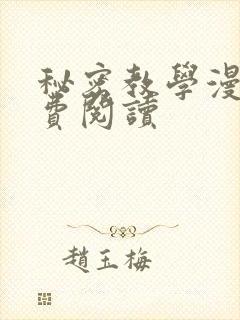 秘密教學漫
費閱讀
趙玉梅